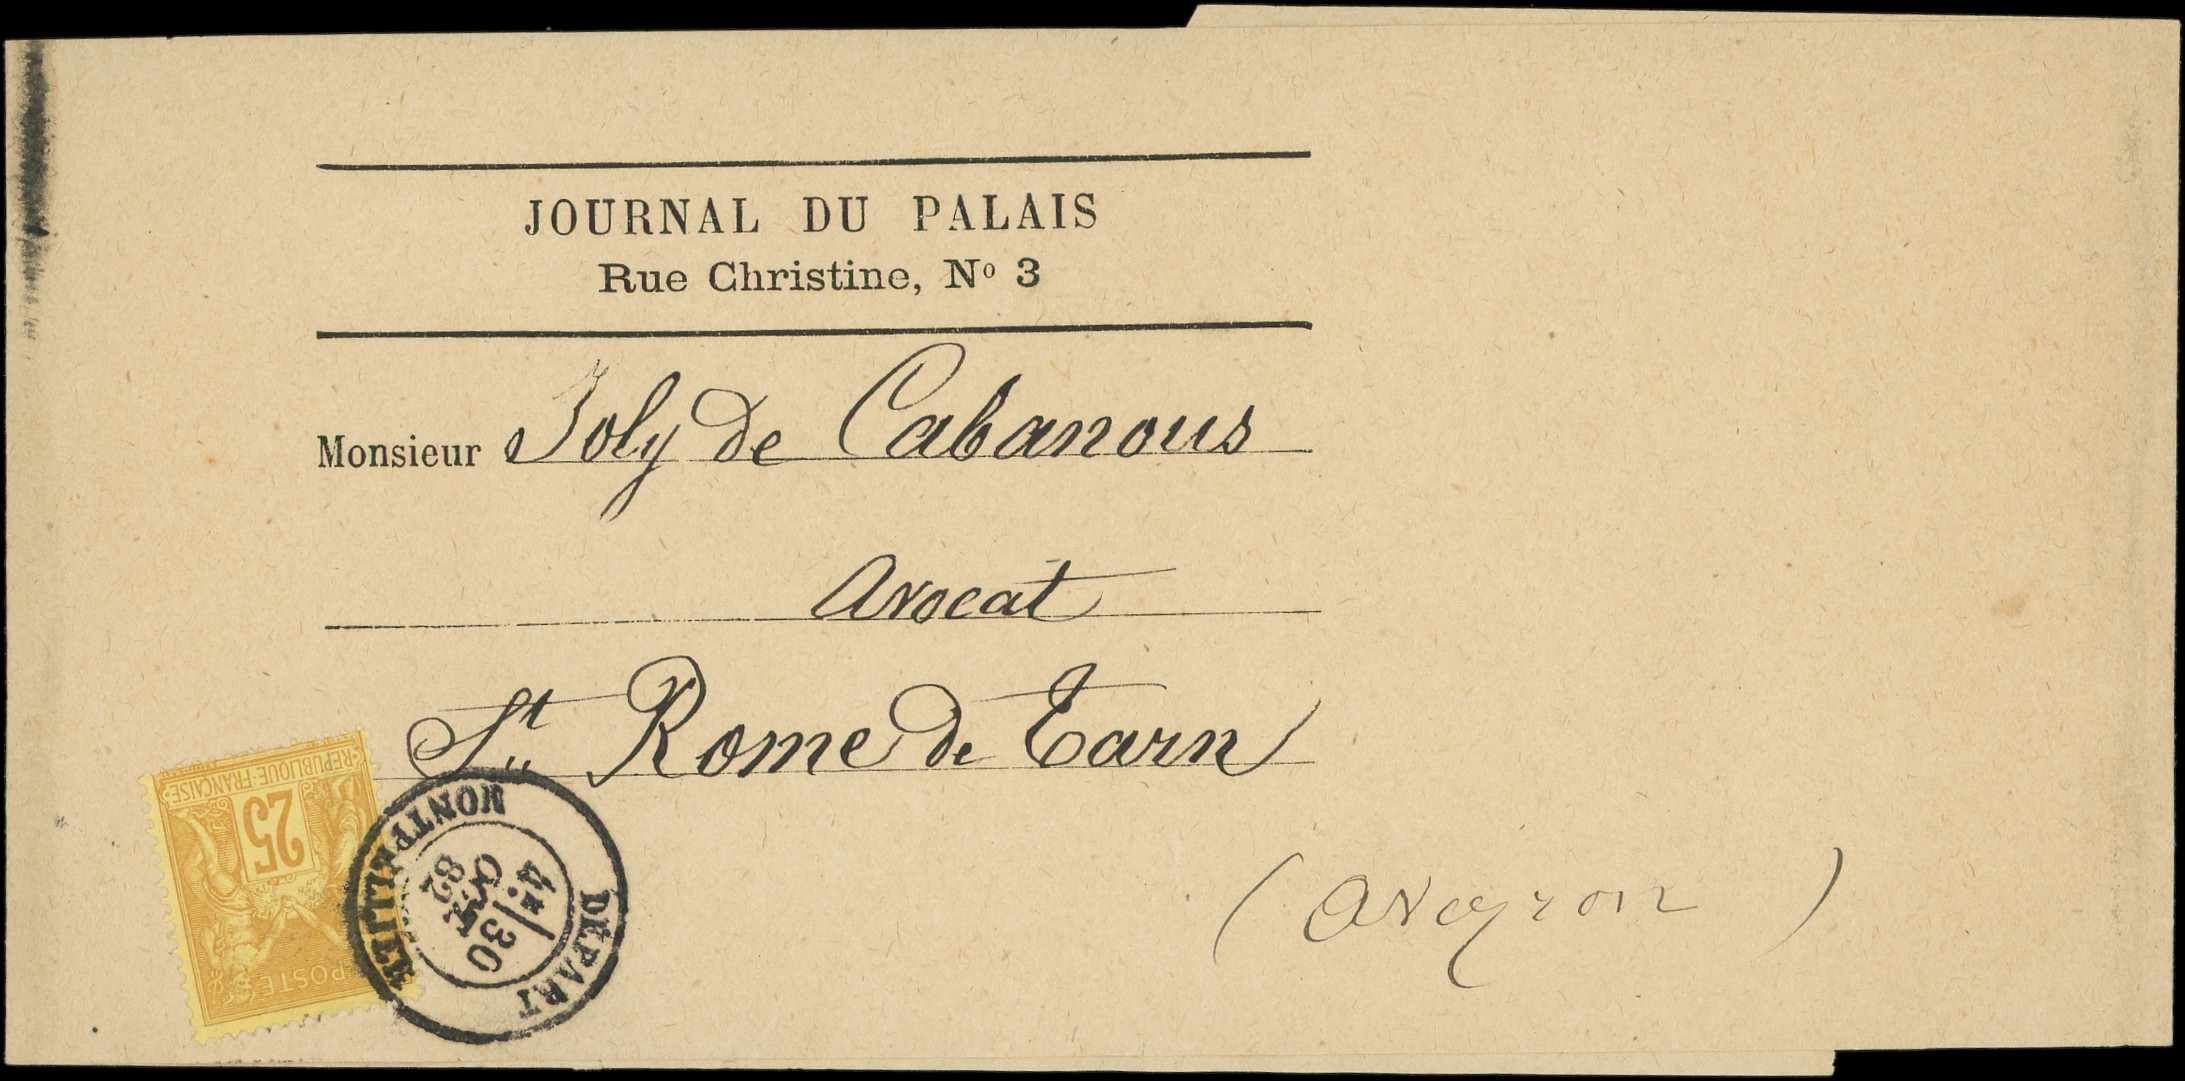 JOURNAL DU PALAIS
Rue Christine, Nº 3
Monsieur Joly de Cabanous
Avocat
St Rome de Tarn
(Aveyron)
REPUBLIQUE FRANÇAISE
25
POSTES
MONTPELLIER
4E 30
OCT
82
DÉPART